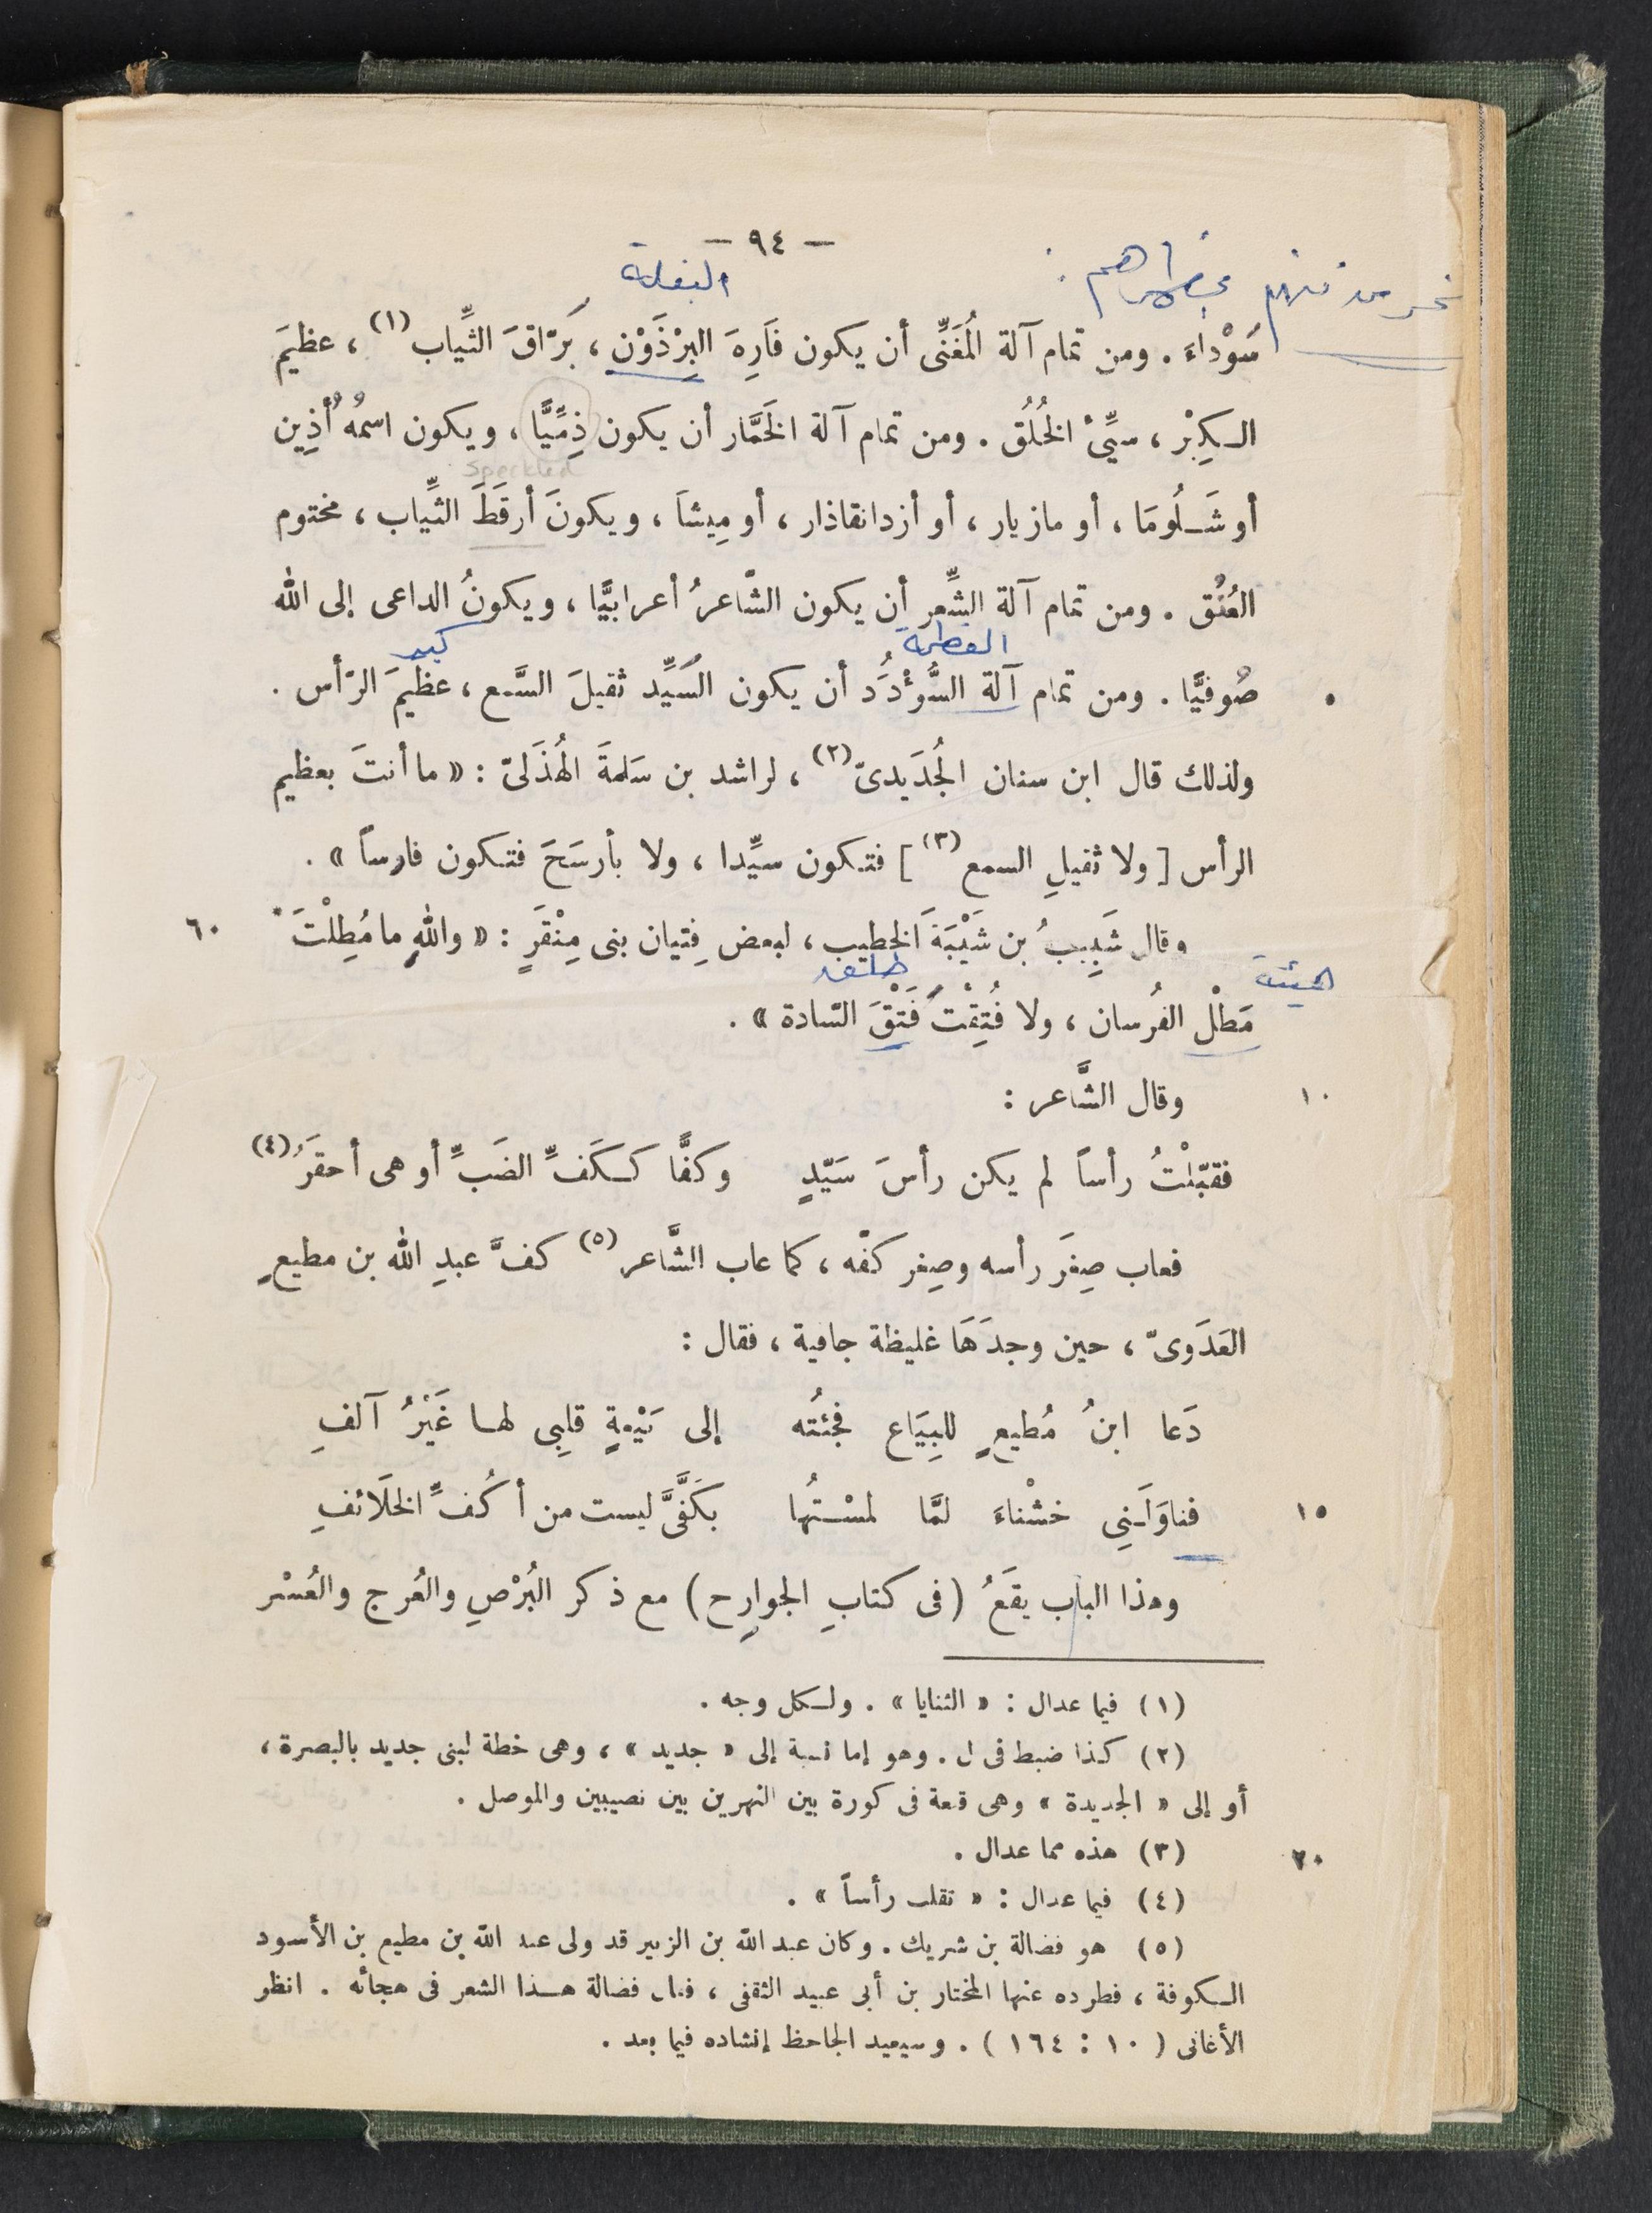 — ٩٤ —
البغلة
سَوْداءَ . ومن تمام آلة المُغَنِّى أن يكون فَارِهَ البِرْذَوْن ، بَرّاقَ الثِّياب (١) ، عظيمَ
الكِبْر ، سيِّئَ الخُلُق . ومن تمام آلة الخَمَّار أن يكون ذِمِّيًّا ، ويكون اسمُهُ أذِين
speckled
أو شَلُومَا ، أو مازيار ، أو أزدانقاذار ، أو مِيشَا ، ويكونَ أرقَطَ الثِّياب ، مختوم
العُنُق . ومن تمام آلة الشِّعر أن يكون الشّاعرُ أعرابيًّا ، ويكونُ الداعى إلى الله
العظمة كبير
صُوفيًّا . ومن تمام آلة السُّؤْدَُد أن يكون السَّيِّد ثقيلَ السَّمع ، عظيمَ الرّأس .
٥
ولذلك قال ابن سنان الجُدَيدىّ (٢) ، لراشد بن سَلمةَ الهُذَلىّ : « ما أنتَ بعظيم
الرأس [ ولا ثقيلِ السمع (٣) ] فتكون سيِّدا ، ولا بأرسَحَ فتكون فارساً » .
وقال شَبِيبُ بن شَيْبَةَ الخطيب ، لبعض فِتيان بنى مِنْقَرٍ : « واللهِ ما مُطِلْتَ *
٦٠
مَطْل الفُرسان ، ولا فُتِقْتَ فَتْقَ السّادة » .
وقال الشَّاعر :
١٠
فقبّلْتُ رأساً لم يكن رأسَ سَيّدٍ وكفًّا ككَفِّ الضَبِّ أو هى أحقرَُ (٤)
فعاب صِغَر رأسه وصِغر كفّه ، كما عاب الشّاعر (٥) كفَّ عبدِ الله بن مطيعٍ
العَدَوىّ ، حين وجدَهَا غليظة جافية ، فقال :
دَعا ابنُ مُطيعٍ للبِيَاع فجئتُه إلى بَيْعةٍ قلبِى لها غَيْرُ آلفِ
فناوَلَنِى خشْناءَ لمَّا لمسْتُها بكَفَّىَّ ليست من أكُفِّ الخلَائفِ
١٥
وهذا الباب يقَعُ ( فى كتابِ الجوارِح ) مع ذكر البُرْصِ والعُرج والعُسْر
(١) فيما عدال : « الثنايا » . ولكل وجه .
(٢) كذا ضبط فى ل . وهو إما نسبة إلى « جديد » ، وهى خطة لبنى جديد بالبصرة ،
أو إلى « الجديدة » وهى قلعة فى كورة بين النهرين بين نصيبين والموصل .
(٣) هذه مما عدال .
٢٠
(٤) فيما عدال : « تقلب رأساً » .
(٥) هو فضالة بن شريك . وكان عبد الله بن الزبير قد ولى عبد الله بن مطيع بن الأسود
الكوفة ، فطرده عنها المختار بن أبى عبيد الثقفى ، فقال فضالة هذا الشعر فى هجائه . انظر
الأغانى ( ١٠ : ١٦٤ ) . وسيعيد الجاحظ إنشاده فيما بعد .